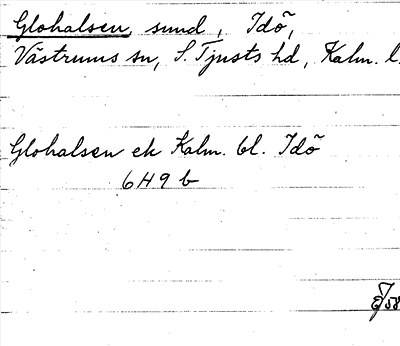 Glohalsen, sund, Idö,
Västrums sn, S. Tjusts hd, Kalm. l.
Glohalsen ek Kalm. bl. Idö
6H9 b